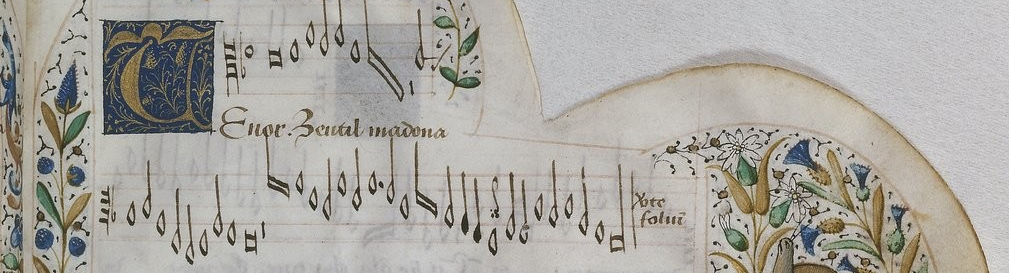 TEnor. Zentil madona
v̾te
foliū